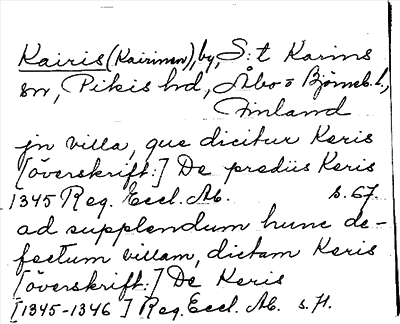 Kairis (Kairinen), by, S:t Karins
sn, Pikis hd, Åbo o Björneb. l.,
Finland
jn villa, que dicitur Keris
[överskrift:] De prediis Keris
1345 Reg. Eccl. Ab. s. 67.
ad supplendum hunc de-
fectum villam, dictam Keris
[överskrift:] De Keris
[1345-1346] Reg. Eccl. Ab. s. 71.